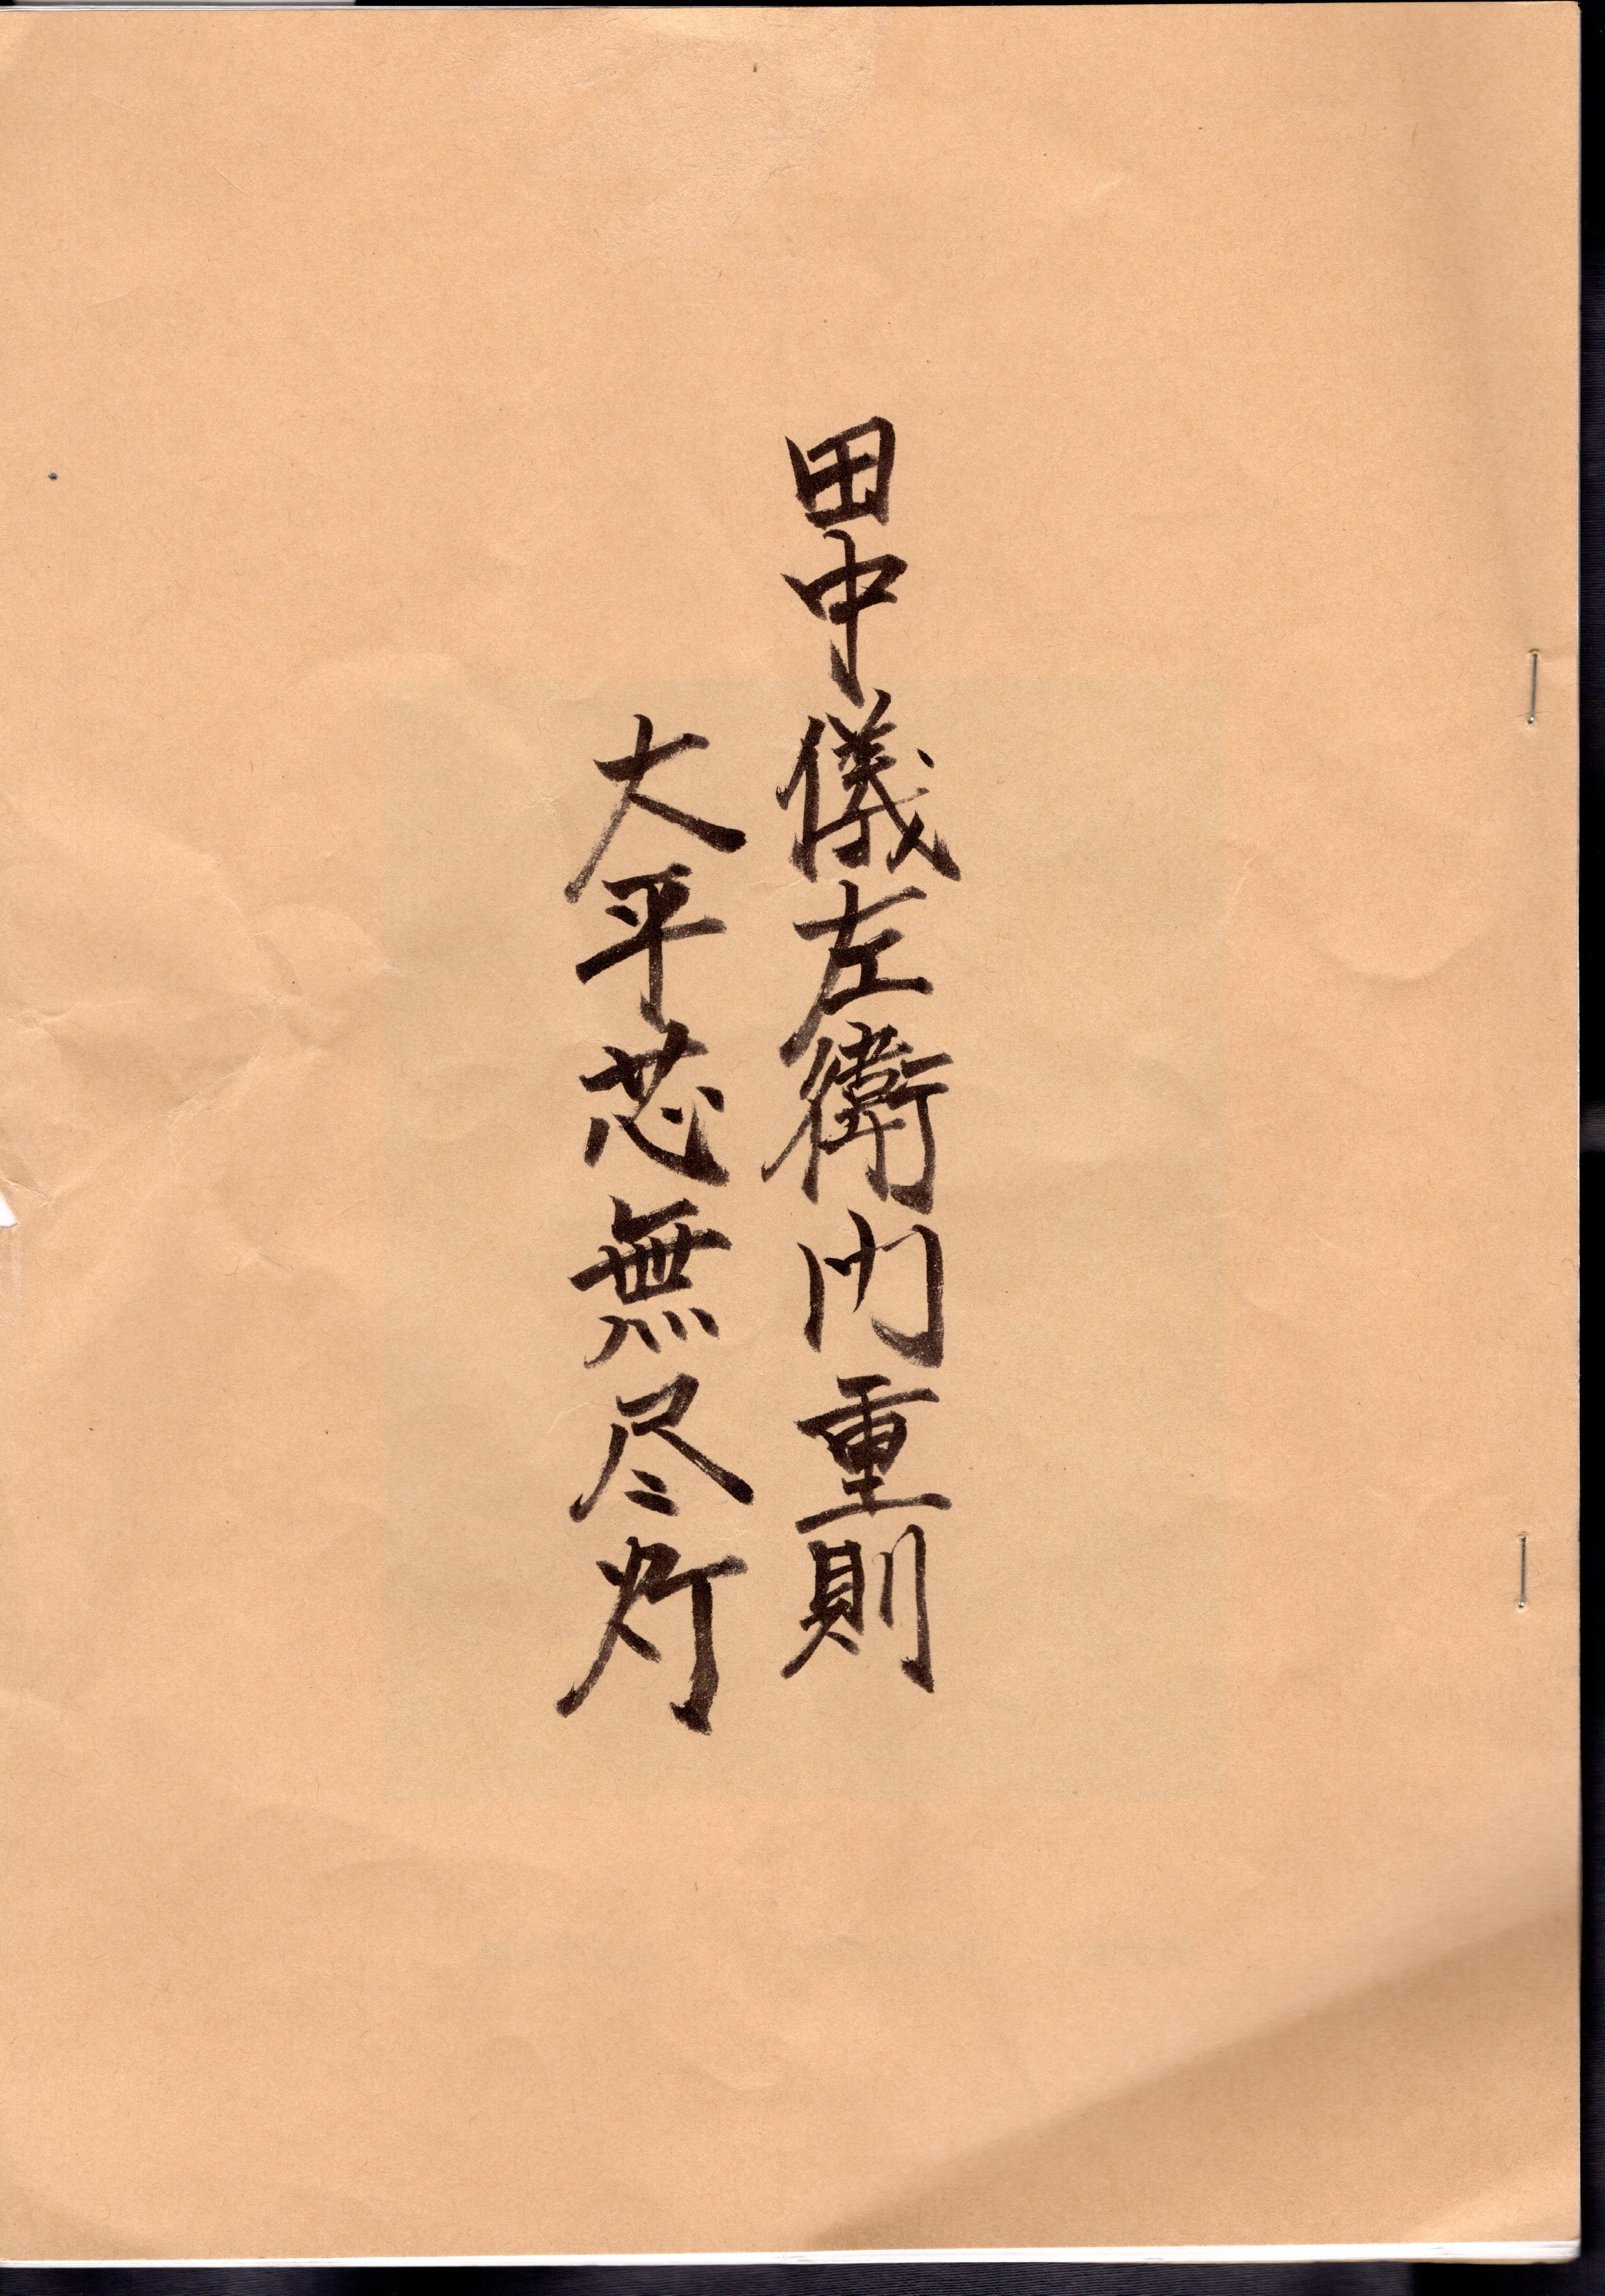 田中儀左衛門重則
大平芯無尽灯